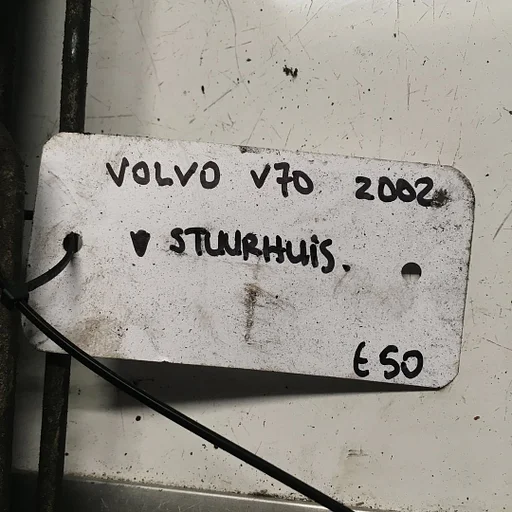 VOLVO V70 2002
▼ STUURHUIS.
€50